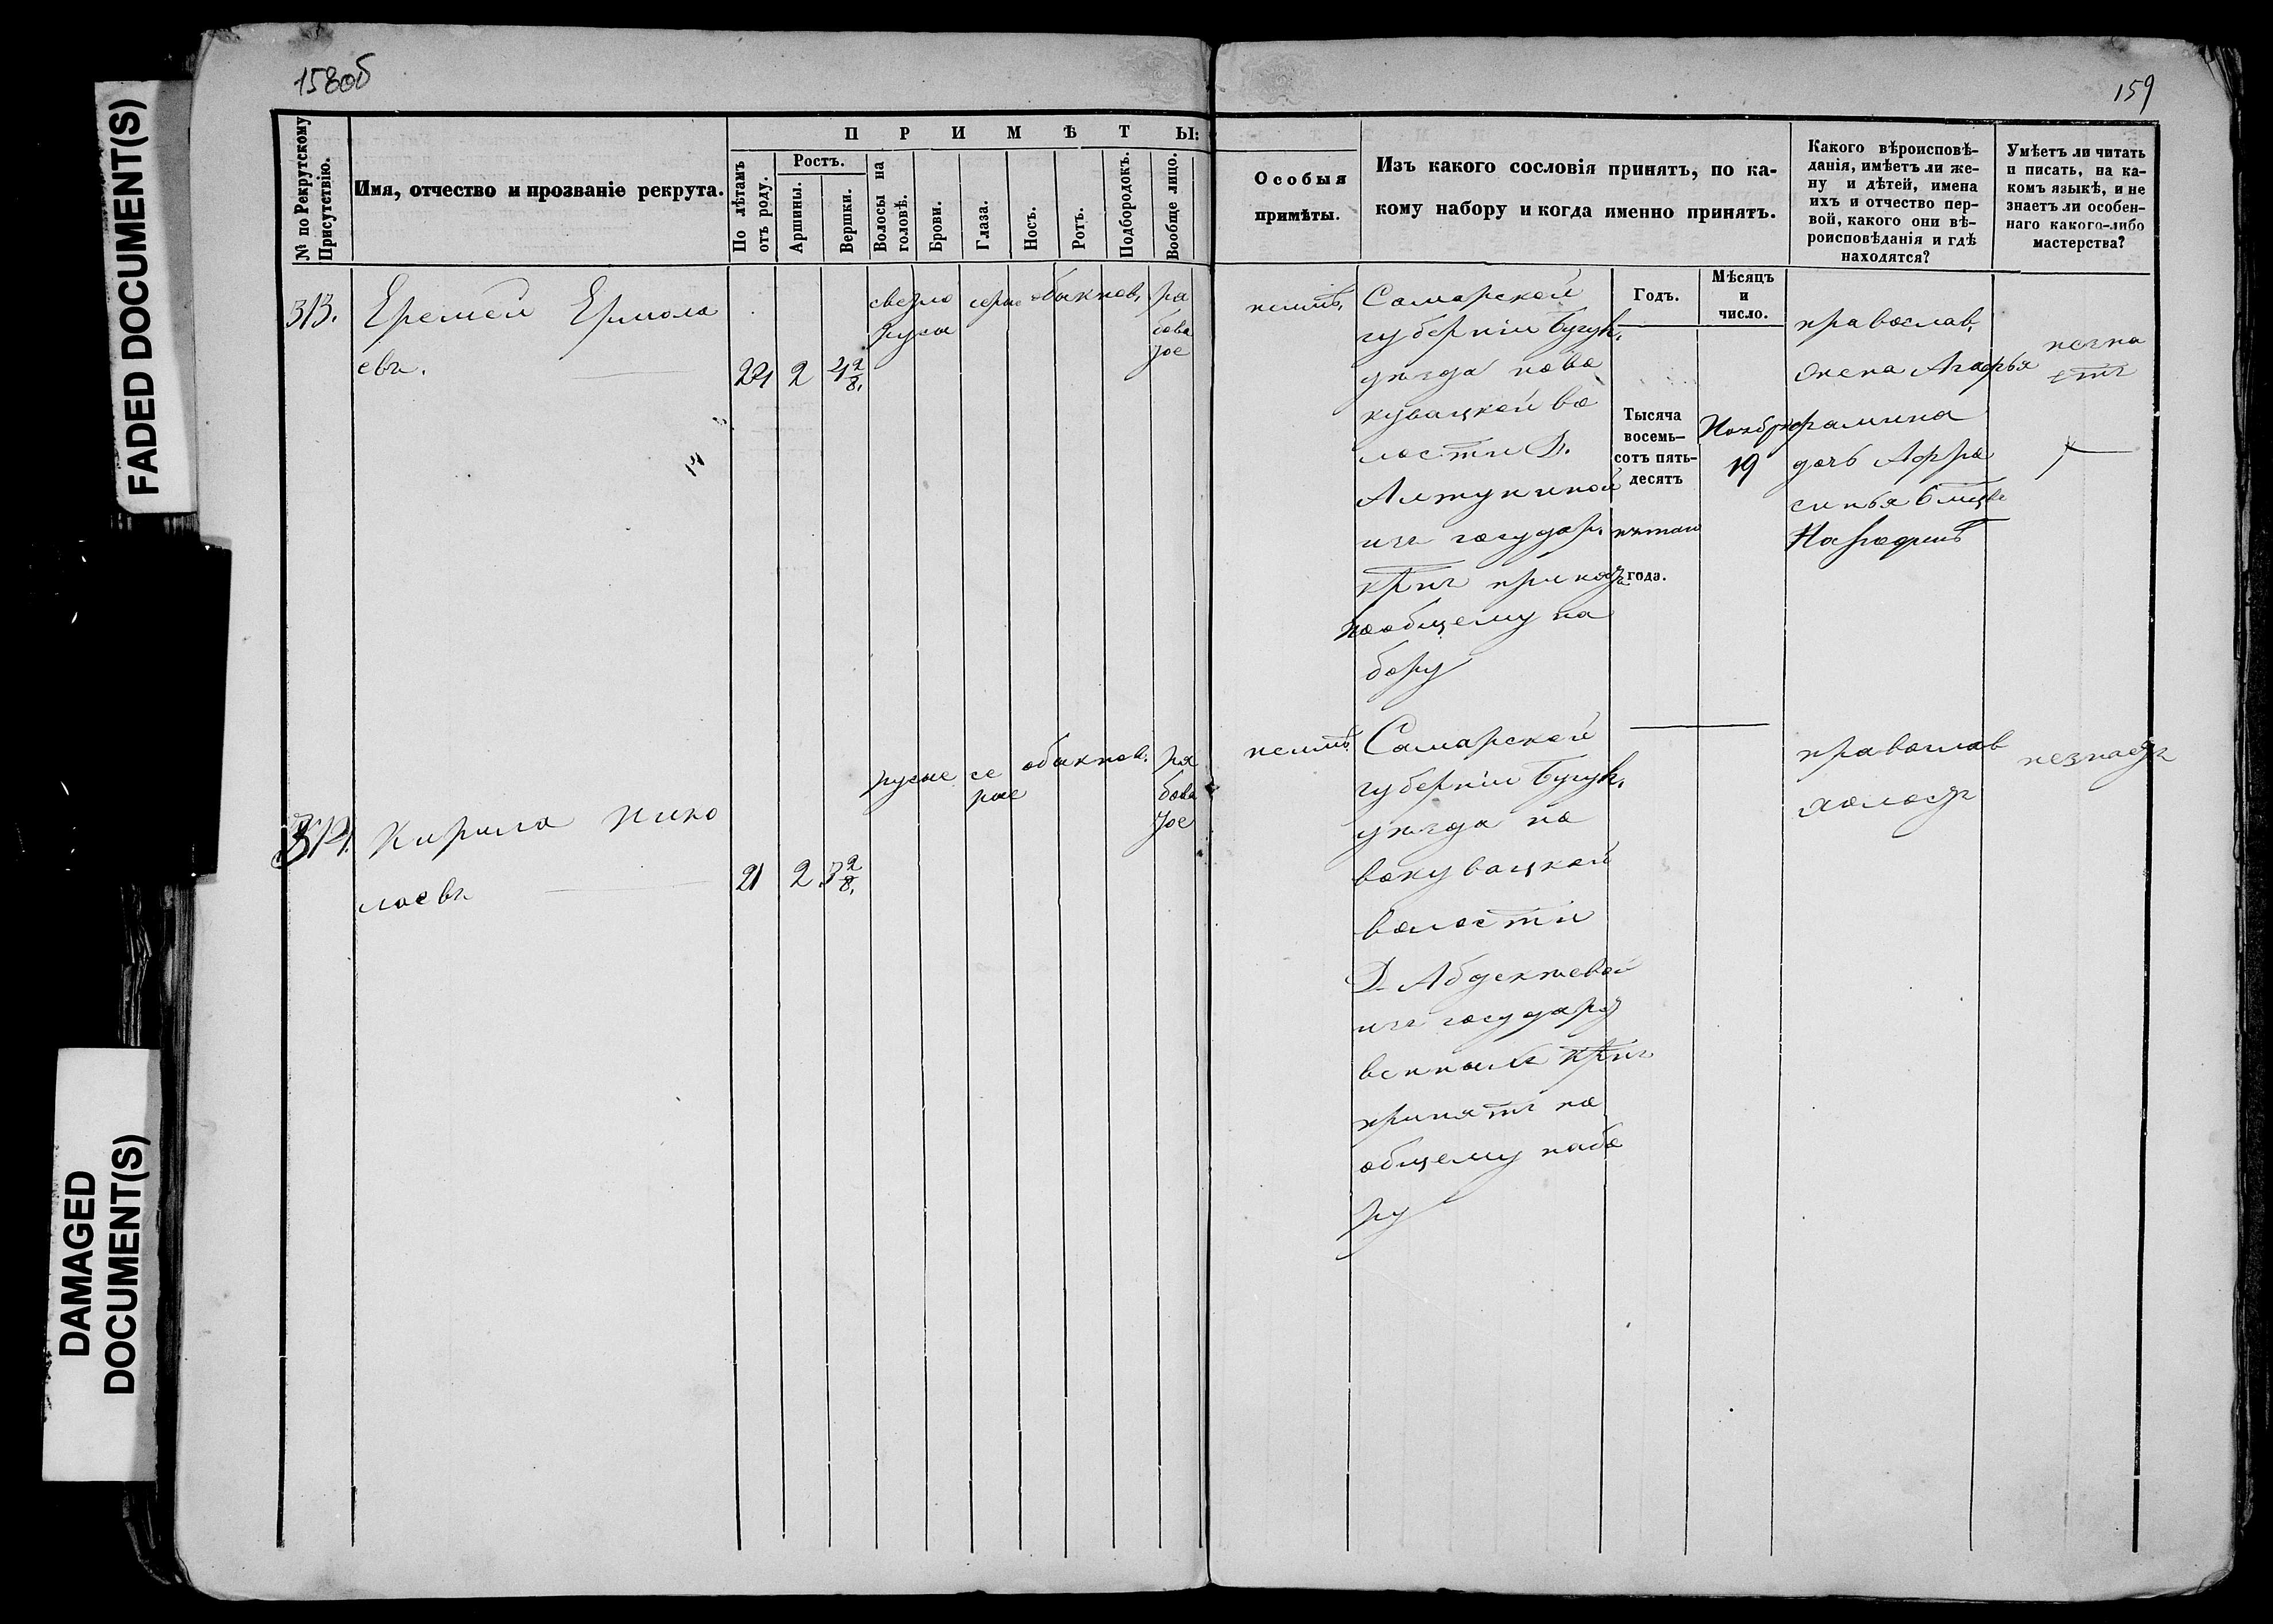 158об
159
FADED DOCUMENT(S)
DAMAGED
DOCUMENT(S)
№ по Рекрутскому
Присутствію.
Имя, отчество и прозваніе рекрута.
ПРИМѢТЫ:
По лѣтамъ
отъ роду.
Ростъ.
Аршины.
Вершки.
Волосы на
головѣ.
Брови.
Глаза.
Носъ.
Ротъ.
Подбородокъ.
Вообще лицо.
Особыя
примѣты.
Изъ какого сословія принятъ, по ка-
кому набору и когда именно принятъ.
Какого вѣроисповѣ-
данія, имѣетъ ли же-
ну и дѣтей, имена
ихъ и отчество пер-
вой, какого они вѣ-
роисповѣданія и гдѣ
находятся?
Умѣетъ ли читать
и писать, на ка-
комъ языкѣ, и не
знаетъ ли особен-
наго какого-либо
мастерства?
Годъ.
Мѣсяцъ
и
число.
313.
Еремей Ермола
евъ.
24 2 4 2/8.
светло
русы
серые
обыкнов.
ра
бова
тое
неимѣ.
Самарской
губерніи Бугул.
уѣзда ново
кувацкой во
лости Д.
Алтукиной
изъ государ.
крнъ принят
пообщему на
бору
Тысяча
восемь-
сотъ пять-
десятъ
пятаго
года.
Ноября
19
православ.
жена Агафья
фамина
дочь Афро
синья 6 мцве
На родинѣ
незна
етъ
314.
Кирила Нико
лаевъ
21 2 3 2/8.
русые
се
рые
обыкнов.
ря
бова
тое
неимѣ
Самарской
губерніи Бугул.
уѣзда но
вокувацкой
волости
Д. Абдекеевой
изъ государст
венныхъ крнъ
принятъ по
общему набо
ру
православ
холостъ
незнаетъ